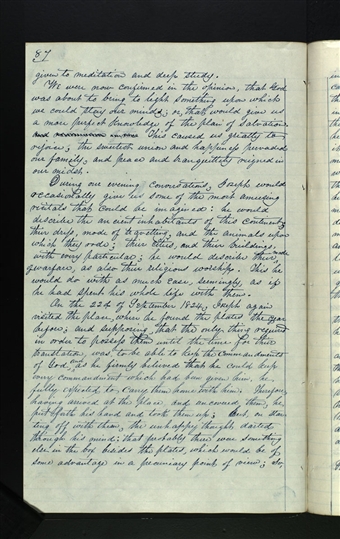 87
given to meditation and deep study.
We were now confirmed in the opinion, that God
was about to bring to light something upon which
we could stay our minds; or, that would give us
a more perfect knowledge of the plan of salvation.
This caused us greatly to
rejoice; the sweetest union and happiness pervaded
our family, and peace and tranquility reigned in
our midst.
During our evening conversations, Joseph would
occasionally give us some of the most amusing
recitals that could be imagined: he would
describe the ancient inhabitants of this continent;
their dress, mode of traveling, and the animals upon
which they rode; their cities, and their buildings,
with every particular; he would describe their mode
of warfare, as also their religious worship. This he
would do with as much ease, seemingly, as if
he had spent his whole life with them.
On the 22d of September, 1824, Joseph again
visited the place where he found the plates the year
before; and supposing that the only thing required
in order to possess them until the time for their
translation, was, to be able to keep the commandments
of God, and as he firmly believed that he could keep
every commandment which had been given him, he
fully expected to carry them home with him. Therefore,
having arrived at the place and uncovered them, he
put forth his hand and took them up; But, on star-
ting off with them, the unhappy thought darted
through his mind; that probably there was something
else in the box besides the plates, which would be of
some advantage in a pecuniary point of view; So,